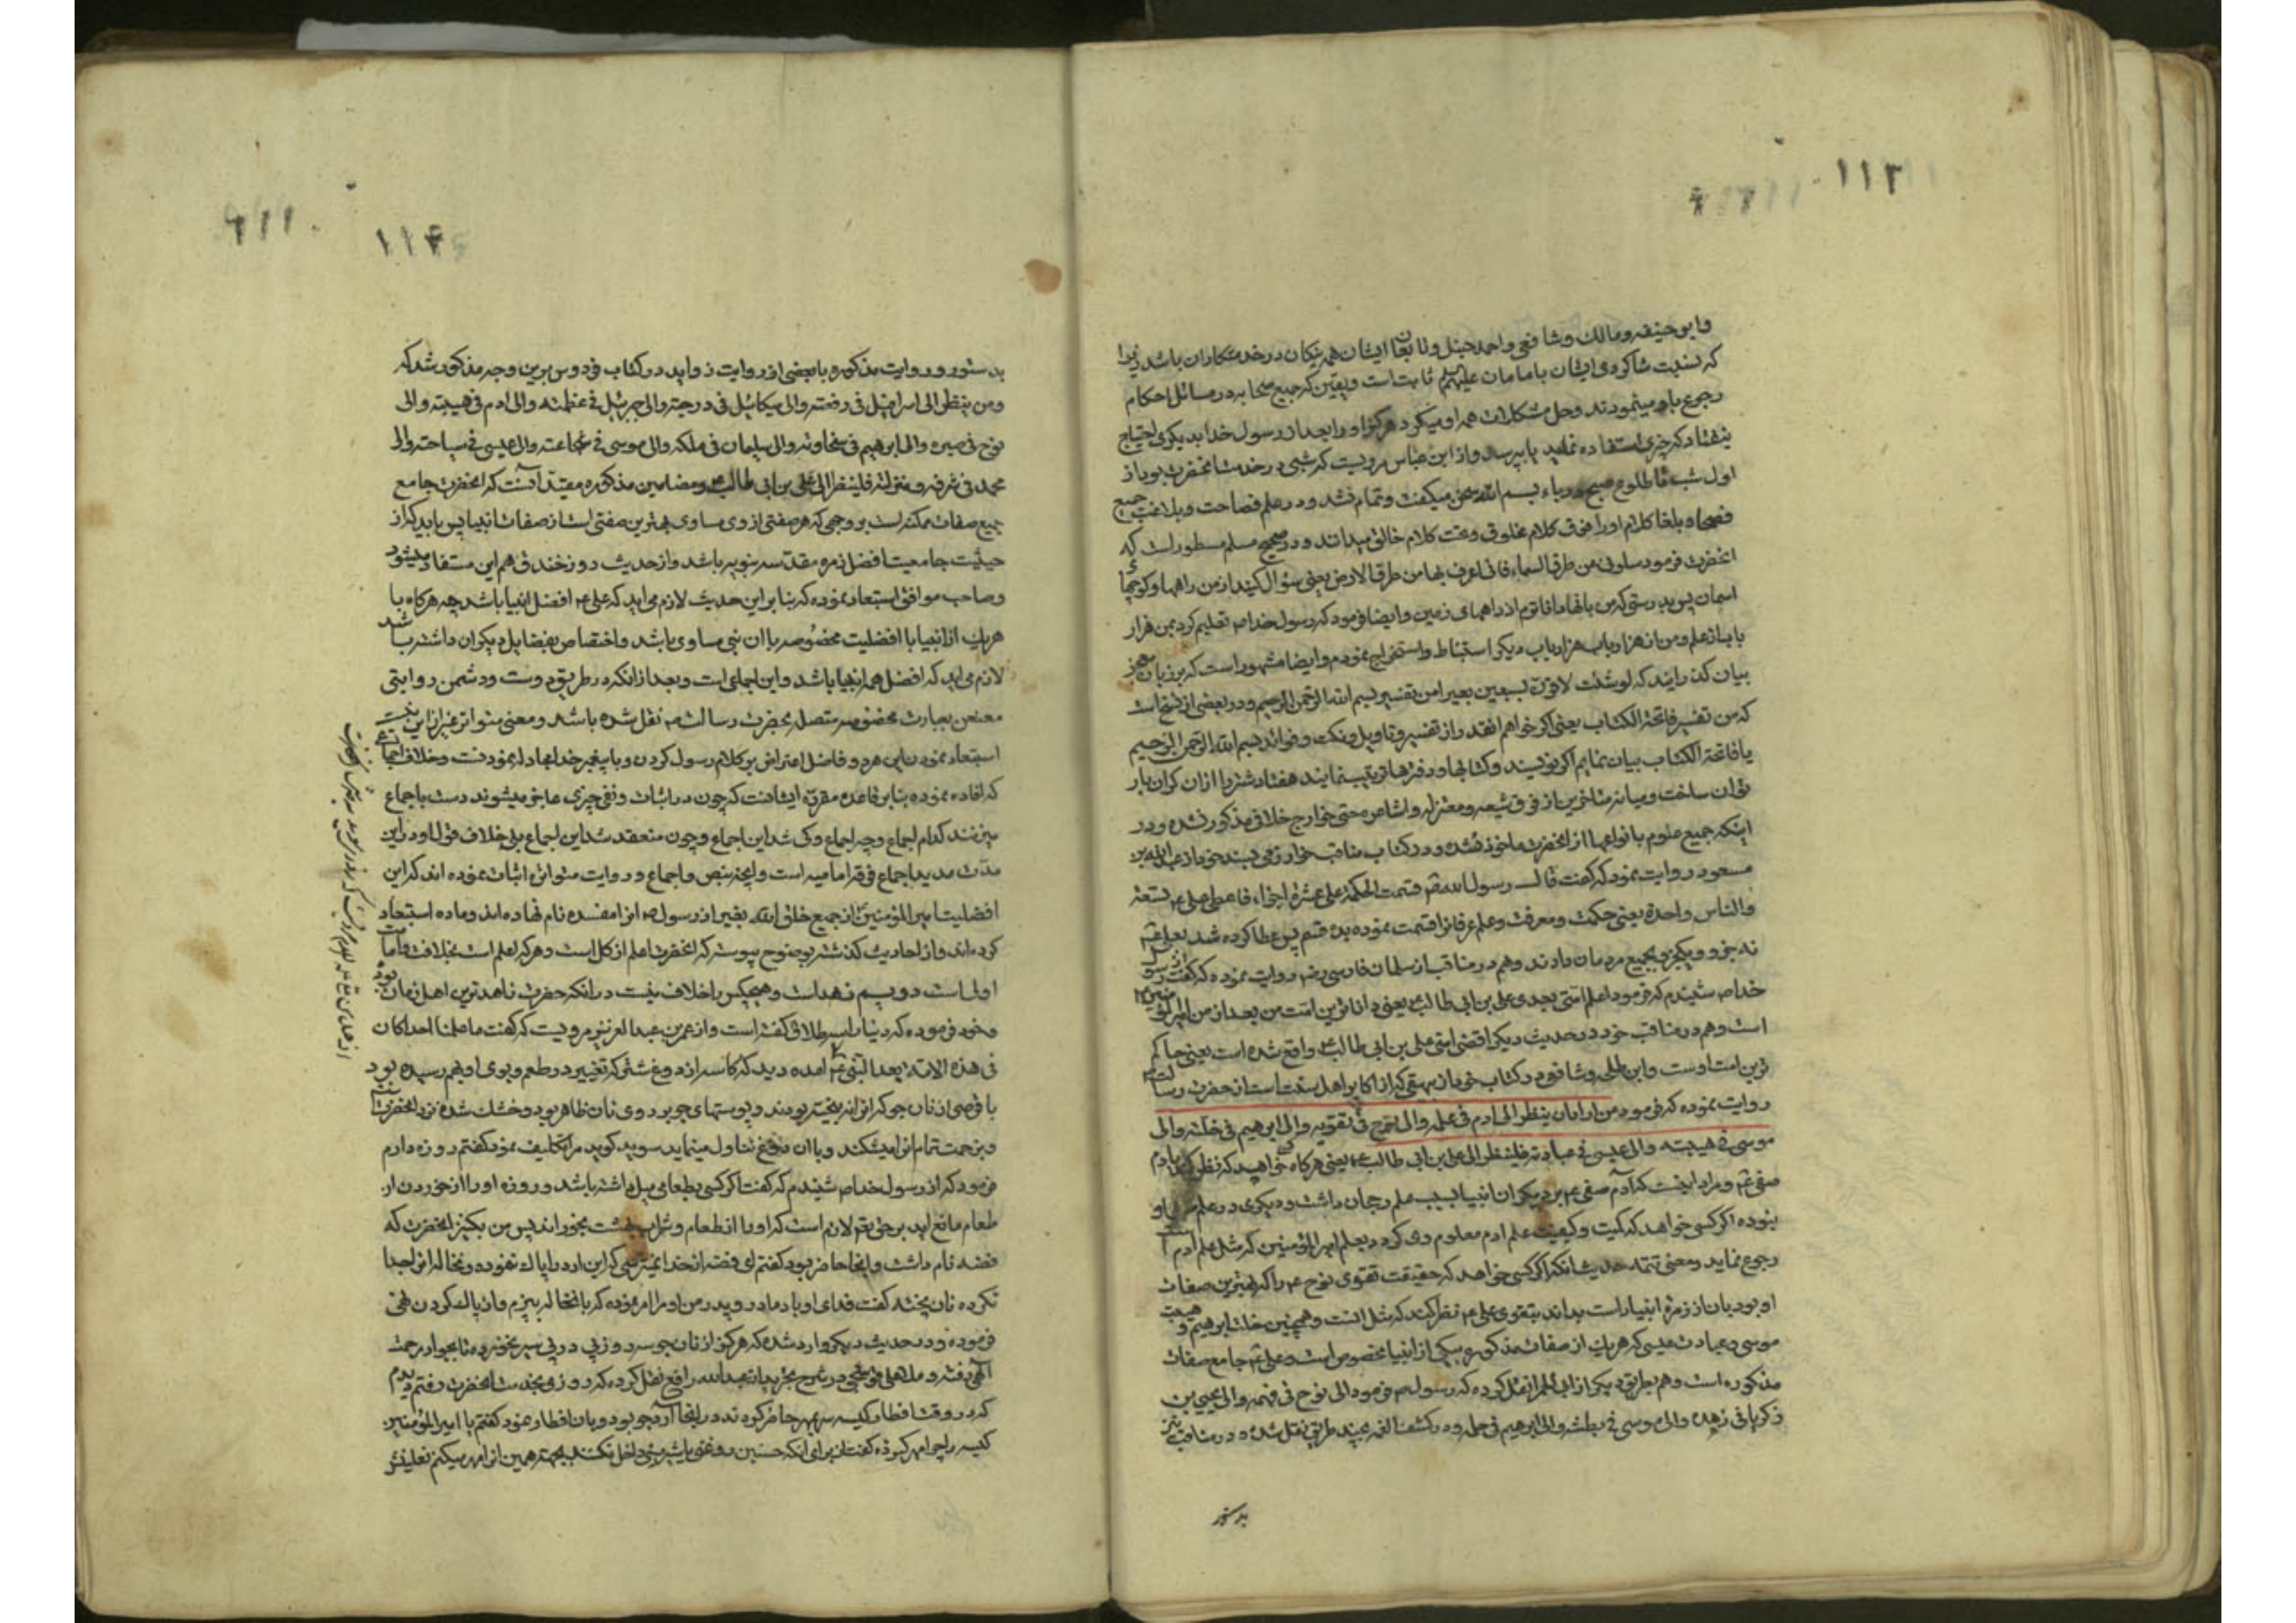 ۱۱۳
وابو حنیفه و مالک و شافعی و احمد حنبل و تابعان ایشان همه یکان در خدمتکاران باشد زیرا
که نسبت شاکردی ایشان بامامان علیهم ثابت است و یقین که جمیع صحابه در مسائل احکام
رجوع باو مینمودند و حل مشکلات همه او میکرد و هرکز او را بعد از رسول خدا بدیکری احتیاج
نیفتاد که چیزی استفاده نماید یا بپرسد و از ابن عباس مرویست که شبی در خدمت آنحضرت بود از
اول شب تا طلوع صبح در باء بسم الله سخن میکفت و تمام نشد و در علم فصاحت و بلاغت جمیع
فصحا و بلغا کلام او را فوق کلام مخلوق و تحت کلام خالق میدانند و در صحیح مسلم مسطور است که
انحضرت فرمود سلونی من طرق السماء فانی اعرف بها من طرق الارض یعنی سؤال کنید از من راهها و کوچها
اسمان پس بدرستی که من بانها داناترم از راههای زمین و ایضا فرمود که رسول خدا ص تعلیم کرد بمن هزار
باب از علم و من از هر باب هزار باب دیکر استنباط و استخراج نمودم و ایضا مشهور است که بر زبان معجز
بیان کذرانید که لو شئت لاوقرت سبعین بعیرا من تفسیر بسم الله الرحمن الرحیم و در بعضی از نسخ است
که من تفسیر فاتحة الکتاب یعنی اکر خواهم انقدر از تفسیر و تاویل و نکت و فوائد بسم الله الرحمن الرحیم
یا فاتحة الکتاب بیان نمایم اکر نویسند و کتابها و دفترها ترتیب نمایند هفتاد شتر را ازان کران بار
توان ساخت و میانه متاخرین از فرق شیعه و معتزله و اشاعره حتی خوارج خلافی مذکور نشده و در
اینکه جمیع علوم بانواعها از انحضرت ماخوذ شده و در کتاب مناقب خوارزمی بسند خود از عبدالله بن
مسعود روایت نمود که کفت قال رسول الله قسمت الحکمة علی عشرة اجزاء فاعطی علی ع تسعة
والناس واحدة یعنی حکمت و معرفت و علم عرفانرا قسمت نموده بده قسم پس عطا کرده شد بعلی
نه جزو و یکجزو بجمیع مردمان دادند و هم در مناقب از سلمان فارسی رض روایت نموده که کفت از رسول
خدا ص شنیدم که فرمود اعلم امتی بعدی علی بن ابی طالب یعنی داناترین امت من بعد از من امیرالمؤمنین
است و هم در مناقب خود در حدیث دیکر اقضی امتی علی بن ابی طالب ع واقع شده است یعنی حاکم
ترین امت اوست و ابن طلحه شافعی در کتاب خود از بیهقی که از اکابر اهل سنت است از حضرت رسالت
روایت نموده که فرمود من اراد ان ینظر الی ادم فی علمه والی نوح فی تقویه والی ابرهیم فی خلته والی
موسی فی هیبته والی عیسی فی عبادته فلینظر الی علی بن ابی طالب ع یعنی هرکاه خواهید که نظر کنید بادم
صفی و مراد اینست که آدم صفی ع بر دیکران انبیا بسبب علم رجحان داشت و دیکری در علم او
نبوده اکر کسی خواهد که کمیت و کیفیت علم ادم معلوم وی کردد بعلم امیرالمؤمنین که مثل علم ادم است
رجوع نماید و معنی تتمه حدیث انکه اکر کسی خواهد که حقیقت تقوی نوح ع را که بهترین صفات
او بود بان از زمرهٔ انبیا راست بداند بتقوی علی ع نظر کند که مثل انست و همچنین خلت ابرهیم و هیبت
موسی و عبادت عیسی که هریک از صفات مذکوره بیکی از انبیا مخصوص است و علی جامع صفات
مذکوره است و هم بطریق دیکر از ابی الحمرا نقل کرده که رسول فرمود الی نوح فی فهمه والی یحیی بن
زکریا فی زهده والی موسی فی بطشه والی ابرهیم فی حلمه و در کشف الغمه بچند طریق نقل شده و در مناقب نیز
بدستور
۱۱۴
۶۱۱
بدستور و روایت مذکوره با بعضی از روایت زواید در کتاب فردوس برین وجه مذکور شد که
ومن ینظر الی اسرافیل فی رفعته والی میکائیل فی درجته والی جبرئیل فی عظمته والی ادم فی هیبته والی
نوح فی صبره والی ابرهیم فی سخاوته والی سلیمان فی ملکه والی موسی فی شجاعته والی عیسی فی سیاحته والی
محمد فی شرفه و منزلته فلینظر الی علی بن ابی طالب و مضامین مذکوره مقید آنست که انحضرت جامع
جمیع صفات ممکنه است بر وجهی که هر صفتی از وی مساوی بهترین صفتی است از صفات انبیا پس باید که از
حیثیت جامعیت افضل زمره مقدسه نبویه باشد و از حدیث روز خندق هم این مستفاد میشود
و صاحب مواقف استبعاد نموده که بنابر این حدیث لازم می اید که علی ع افضل انبیا باشد چه هرکاه با
هریک از انبیا با افضلیت مخصوصه باان نبی مساوی باشد و اختصاص بفضایل دیکران داشته باشد
لازم می اید که افضل همه انبیا باشد و این اجماعی است و بعد ازانکه در طریق دوست و دشمن روایتی
معنعن بعبارت مخصوصه متصل بحضرت رسالت نقل شده باشد و معنی متواتر غیر از این نیست
استبعاد نمودن این مرد فاضل اعتراض بر کلام رسول کردن و با پیغمبر خدا مجادله نمودنست و خلاف اجماعی
که افاده نموده بنابر قاعده مقرره ایشانست که چون در اثبات و نفی چیزی عاجز میشوند دست باجماع
میزنند کدام اجماع و چه اجماع و کی شد این اجماع و چون منعقد شد این اجماع بلی خلاف قول او در این
مدت مدید اجماع فرقه امامیه است و اینجه بنص و اجماع و روایت متواتر اثبات نموده اند که این
افضلیت امیر المؤمنین از جمیع خلق الله بغیر از رسول انرا مفسده نام نهاده اند و ماده استبعاد
کرده اند و از احادیث کذشته بوضوح پیوسته که انحضرت اعلم از کل است و هرکه اعلم است بخلافت و امامت
اولی است دویم زهد است و هیچکس را خلاف نیست درانکه حضرت زاهدترین اهل زمان بود
وخود فرموده که دنیا را سه طلاق کفته است و از عمر بن عبدالعزیز مرویست که کفت ما علمنا احدا کان
فی هذه الامة بعد النبی امده دید که کاسه از دوغ شتر که تغییر در طعم و بوی او بهم رسیده بود
با قرصی از نان جو که انرا نه بیخته بودند و پوستهای جو بر روی نان ظاهر بود و خشک شده نزد انحضرت
وبزحمت تمام انرا میشکند و باان دوغ تناول مینماید سوید کوید مرا تکلیف نمود کفتم روزه دارم
فرمود که از رسول خدا ص شنیدم که کفت اکر کسی بطعامی میل داشته باشد و روزه او را از خوردن ان
طعام مانع اید بر حق تع لازم است که او را از طعام و شراب بهشت بخوراند پس من بکنیز انحضرت که
فضه نام داشت و اینجا حاضر بود کفتم ای فضه از خدا نمیترسی که این ارد را پاک نموده و نخاله انرا جدا
نکرده نان پخته کفت فدای او باد مادر و پدر من او مرا امر نموده که با نخاله بپزم و از پاک کردن نهی
فرموده و در حدیث دیکر وارد شده که هرکز از نان جو سه روز پی در پی سیر نخورده تا بجوار رحمت
آلهی رفته و ملا علی قوشجی در شرح تجرید از عبدالله رافع نقل کرده که روزی بخدمت انحضرت رفتم دیدم
که در وقت افطار کیسه سر بمهر حاضر کردند در اینجا آرد جو بود و بان افطار نمود کفتم یا امیر المؤمنین
کیسه را چرا مهر کرده کفت از برای انکه حسنین روغنی یا شیرینی داخل نکنند بجهة همین انرا مهر میکنم نعلین